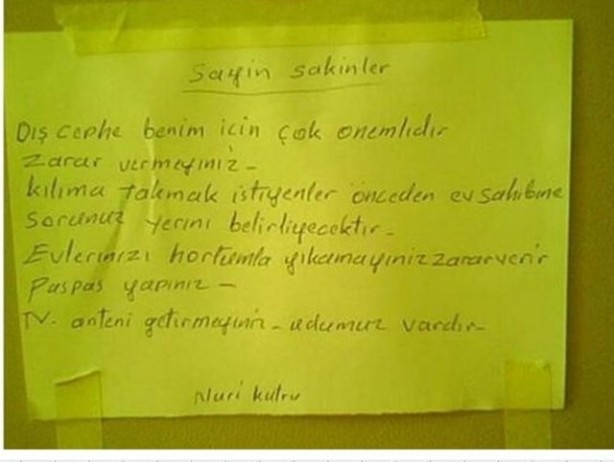 Sayin sakinler
Dış cephe benim için çok önemlidir
Zarar vermeyiniz -
kılıma takmak istiyenler önceden ev sahibine
Sorunuz yerini belirliyecektir -
Evlerinizi hortumla yıkamayınız zarar verir
Paspas yapınız -
TV. anteni getirmeyiniz - udumuz vardır -
Nuri